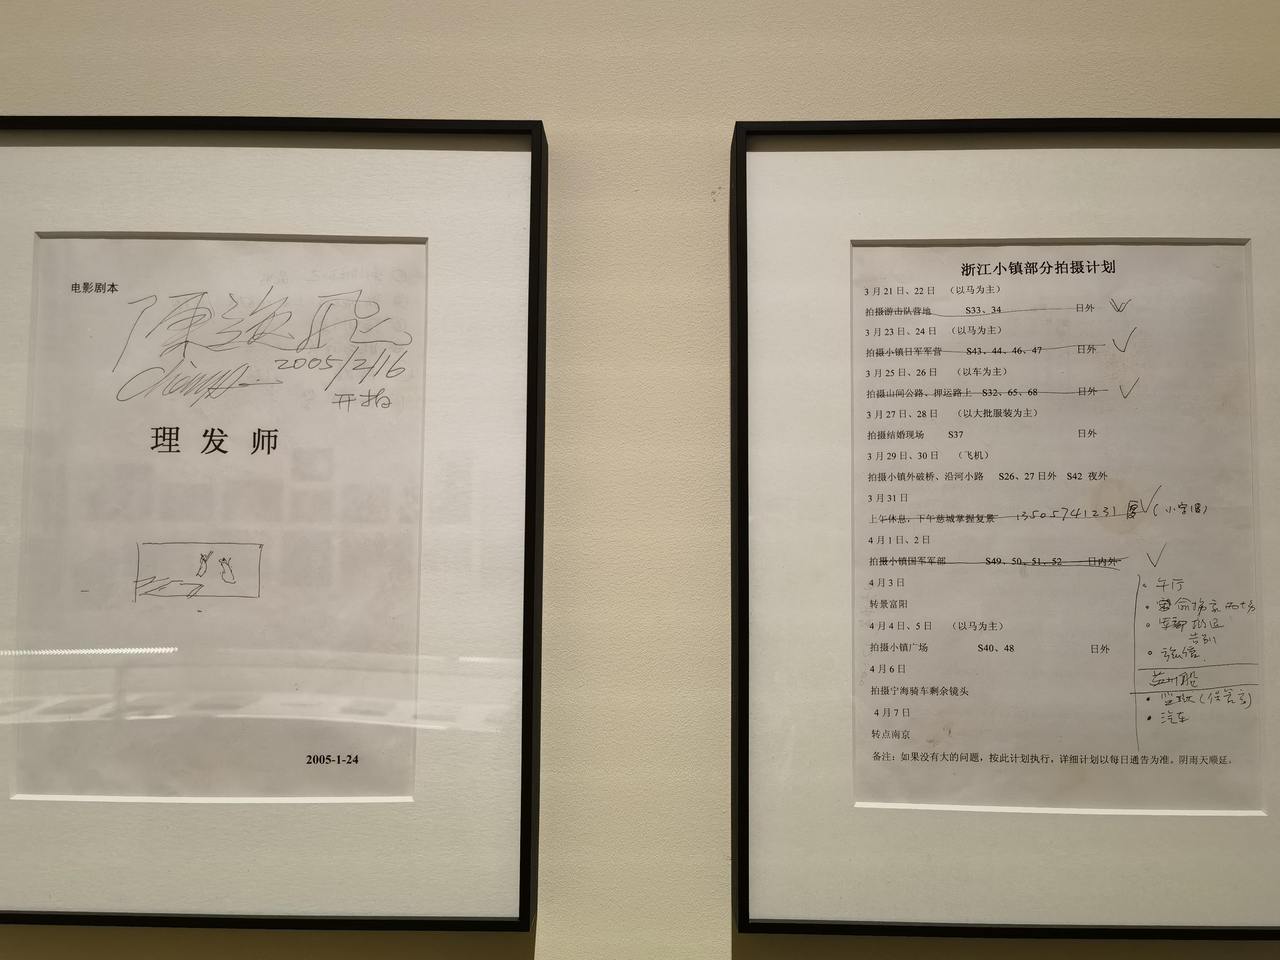 电影剧本
陳逸飛
2005/2/16
开拍
理发师
2005-1-24
浙江小镇部分拍摄计划
3月21日、22日 （以马为主）
拍摄游击队营地 S33、34 日外
3月23日、24日 （以马为主）
拍摄小镇日军军营 S43、44、46、47 日外
3月25日、26日 （以车为主）
拍摄山间公路、押运路上 S32、65、68 日外
3月27日、28日 （以大批服装为主）
拍摄结婚现场 S37 日外
3月29日、30日 （飞机）
拍摄小镇外破桥、沿河小路 S26、27日外 S42 夜外
3月31日
上午休息，下午慈城掌握复景 13505741231
4月1日、2日
拍摄小镇国军军部 S49、50、51、52 日内外
4月3日
转景富阳
4月4日、5日 （以马为主）
拍摄小镇广场 S40、48 日外
4月6日
拍摄宁海骑车剩余镜头
4月7日
转点南京
备注：如果没有大的问题，按此计划执行，详细计划以每日通告为准。阴雨天顺延。
告别
汽车